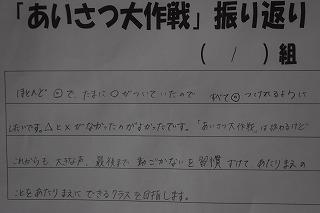 「あいさつ大作戦」振り返り
( / )組
ほとんど◎で、たまに○がついていたので すべて◎つけれるように
したいです。△と×がなかったのがよかったです。「あいさつ大作戦」は終わるけど
これからも 大きな声、最後まで 動ごかないを 習慣 づけて あたりまえの
ことをあたりまえにできるクラスを目指します。